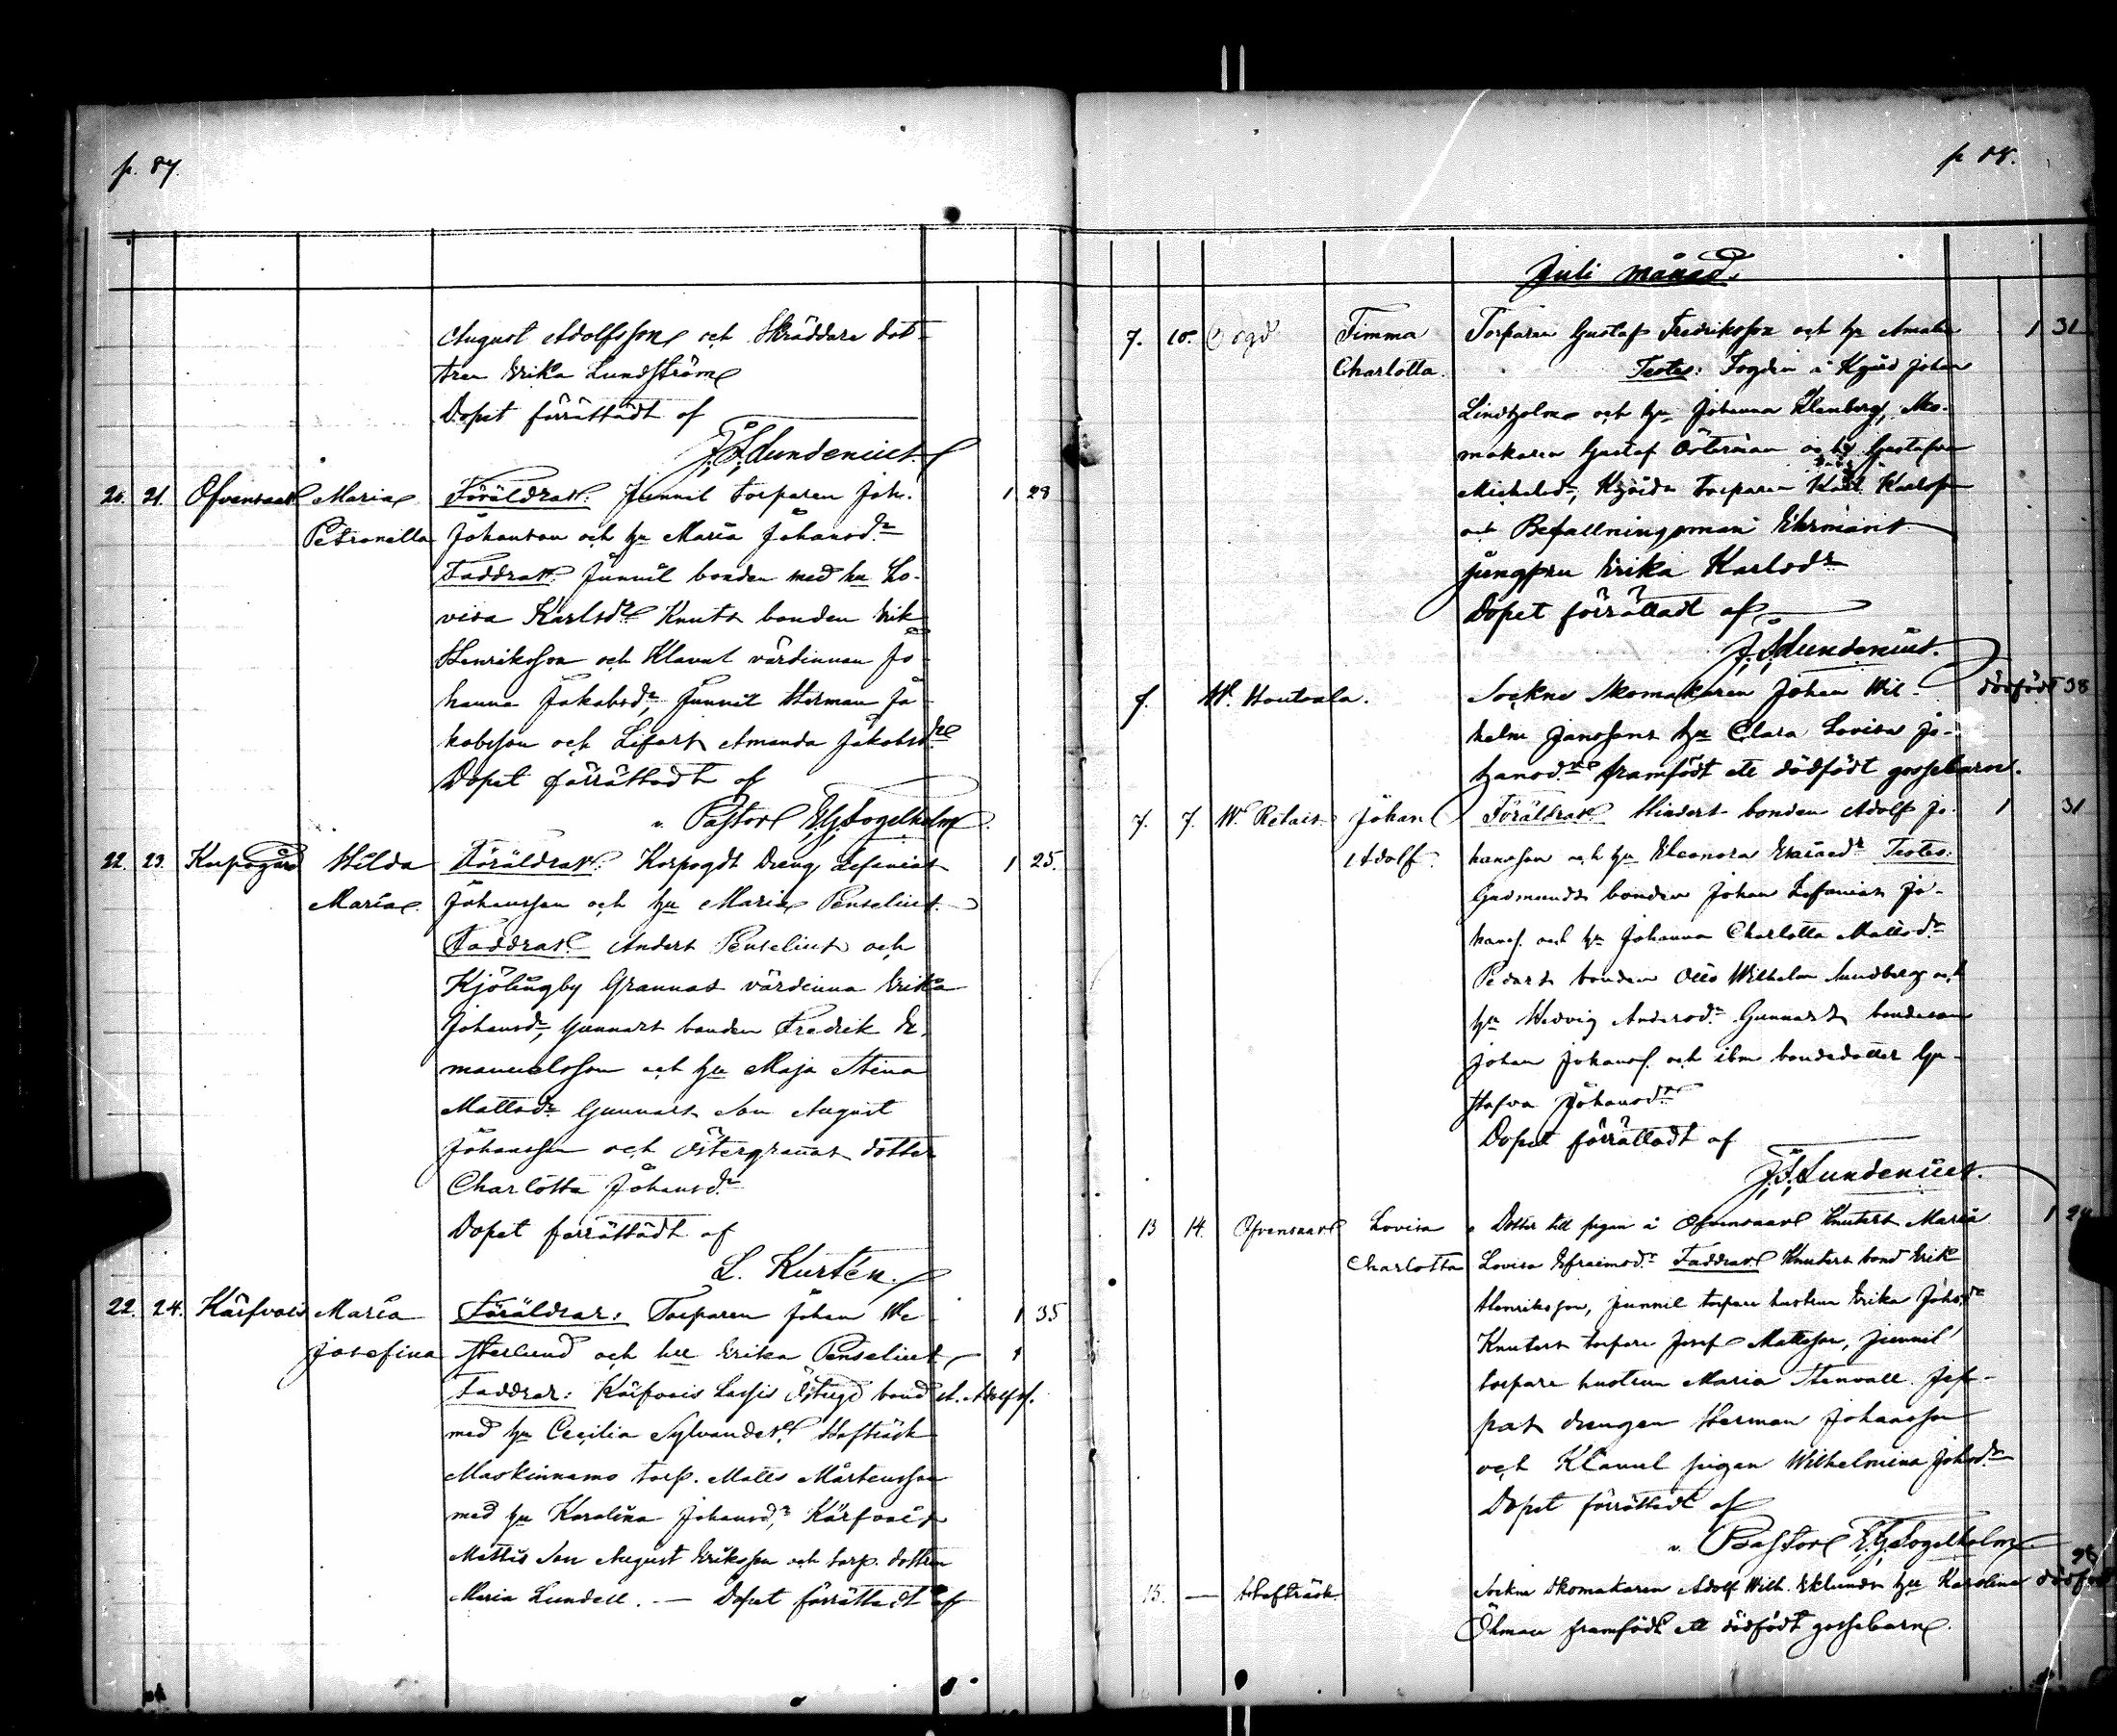 p. 87.
August Adolfsson och Skräddare dot-
tren Erika Lundström
Dopet förrättadt af
J. F. Lundenius.
20. 21. Ofvensaari Maria Föräldrar: Junnil torparen Joh. 1 28
Petronella Johanson och hu Maria Johansdr
Faddrar: Junnil bonden med hu Lo-
visa Karlsdr Knuts bonden Erik
Henriksson och Klavul värdinnan Jo-
hanna Jakobsdr, Junnil Herman Ja-
kobsson och Lifars Amanda Jakobsdr
Dopet förrättadt af
v. Pastor E. G. Fogelholm.
22. 23. Korpogård Hilda Föräldrar: Korpogds Dreng Sefanias 1 25.
Maria Johansson och hu Maria Penselius.
Faddrar: Anders Penselius och
Kjölingby Grannas värdinna Erika
Johansdr, Gunnars bonden Fredrik E-
manuelsson och hu Maja Stina
Mattsdr Gunnars Son August
Johansson och Östergrannas dotter
Charlotta Johansdr
Dopet förrättadt af
L. Kurtén.
22. 24. Kärfvois Maria Föräldrar: Torparen Johan We- 1 35
Josefina sterlund och hu Erika Penselius 1
Faddrar: Kärfvois Lassis bond A. Adolfss.
med hu Cecilia Sylvander, Hafträsk
Maskinnamo torp. Matts Mårtensson
med hu Karolina Johansdr, Kärfvois
Mattis Son August Eriksson och torp. dottren
Maria Lundell. — Dopet förrättadt af
p 88.
Juli månad.
7. 10. Fimma Torparen Gustaf Fredriksson och hu Amalia 1 31
Charlotta. Testes: Fogden å Kgård Johan
Lindholm och hu Johanna Stenberg, Sko-
makaren Gustaf Österman och hu Gustafva
Michelsdr, torparen Karl Karlsson
och Befallningsman Ehrmans
jungfru Erika Karlsdr
Dopet förrättadt af
J. F. Lundenius.
7. W. Houtsala. Sockne Skomakaren Johan Wil- dödfödt 38
helm Janssons hu Clara Lovisa Jo-
hansdr framfödt ett dödfödt gossebarn.
7. 7. W. Retais Johan Föräldrar: Hinders bonden Adolf Jo- 1 31
Adolf. hansson och hu Eleonora Testes:
Gudmunds bonden Johan Sefanias Jo-
hanss. och hu Johanna Charlotta Mattsdr
Pedars bonden Otto Wilhelm Sundberg och
hu Hedvig Andersdr Gunnars bondeson
Johan Johanss. och ibm bondedotter Gu-
stafva Johansdr
Dopet förrättadt af
J. F. Lundenius.
13 14. Ofvensaari Lovisa Dotter till pigan å Ofvensaari Knuters Maria 1
Charlotta Lovisa Efraimsdr Faddrar: Knuters bond Erik
Henriksson, Junnil torpare hustrun Erika Johsdr
Knuters torpare Josef Mattsson, Junnil
torpare hustrun Maria Stenvall. Jep-
pas drengen Herman Johansson
och Klavul pigan Wilhelmina Johsdr
Dopet förrättadt af
v. Pastor E. G. Fogelholm
15. — Hafträsk. Sockne Skomakaren Adolf Wilh. Eklunds hu Karolina dödfödt
Öhman framfödt ett dödfödt gossebarn.